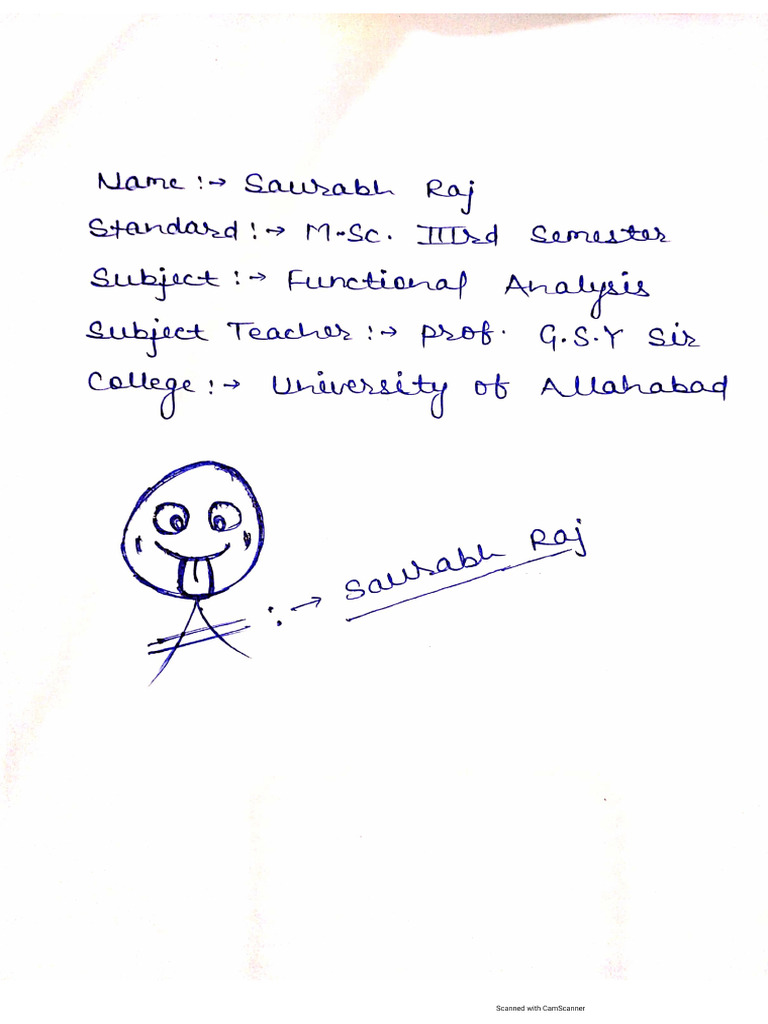 Name :→ Saurabh Raj
Standard :→ M.Sc. IIIrd Semester
Subject :→ Functional Analysis
Subject Teacher :→ Prof. G.S.Y Sir
College :→ University of Allahabad
:→ Saurabh Raj
Scanned with CamScanner